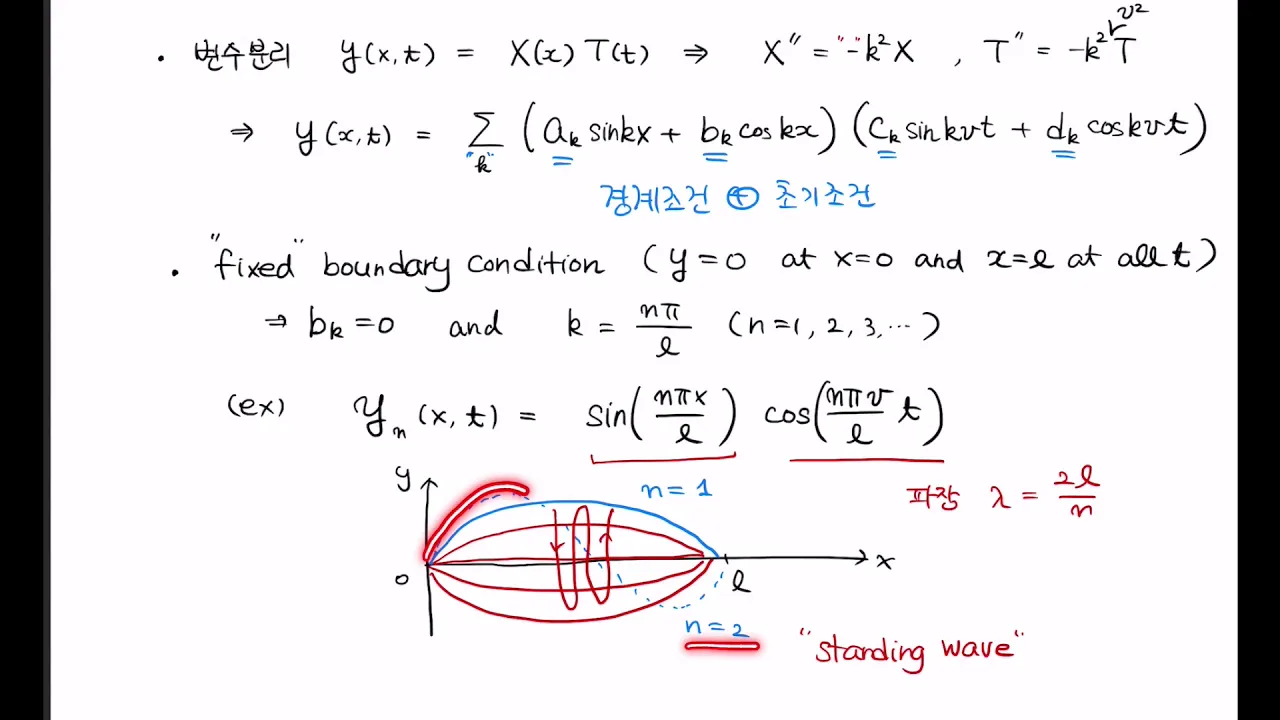 • 변수분리 y(x,t) = X(x) T(t) ⇒ X" = "-"k²X , T" = -k²v²T
⇒ y(x,t) = Σ_"k" (a_k sinkx + b_k coskx) (c_k sinkvt + d_k coskvt)
경계조건 ⊕ 초기조건
• "fixed" boundary condition (y=0 at x=0 and x=l at all t)
⇒ b_k=0 and k = nπ/l (n=1, 2, 3, ...)
(ex) y_n(x,t) = sin(nπx/l) cos(nπv/l t)
y
n=1
파장 λ = 2l/n
0
l
x
n=2
"standing wave"